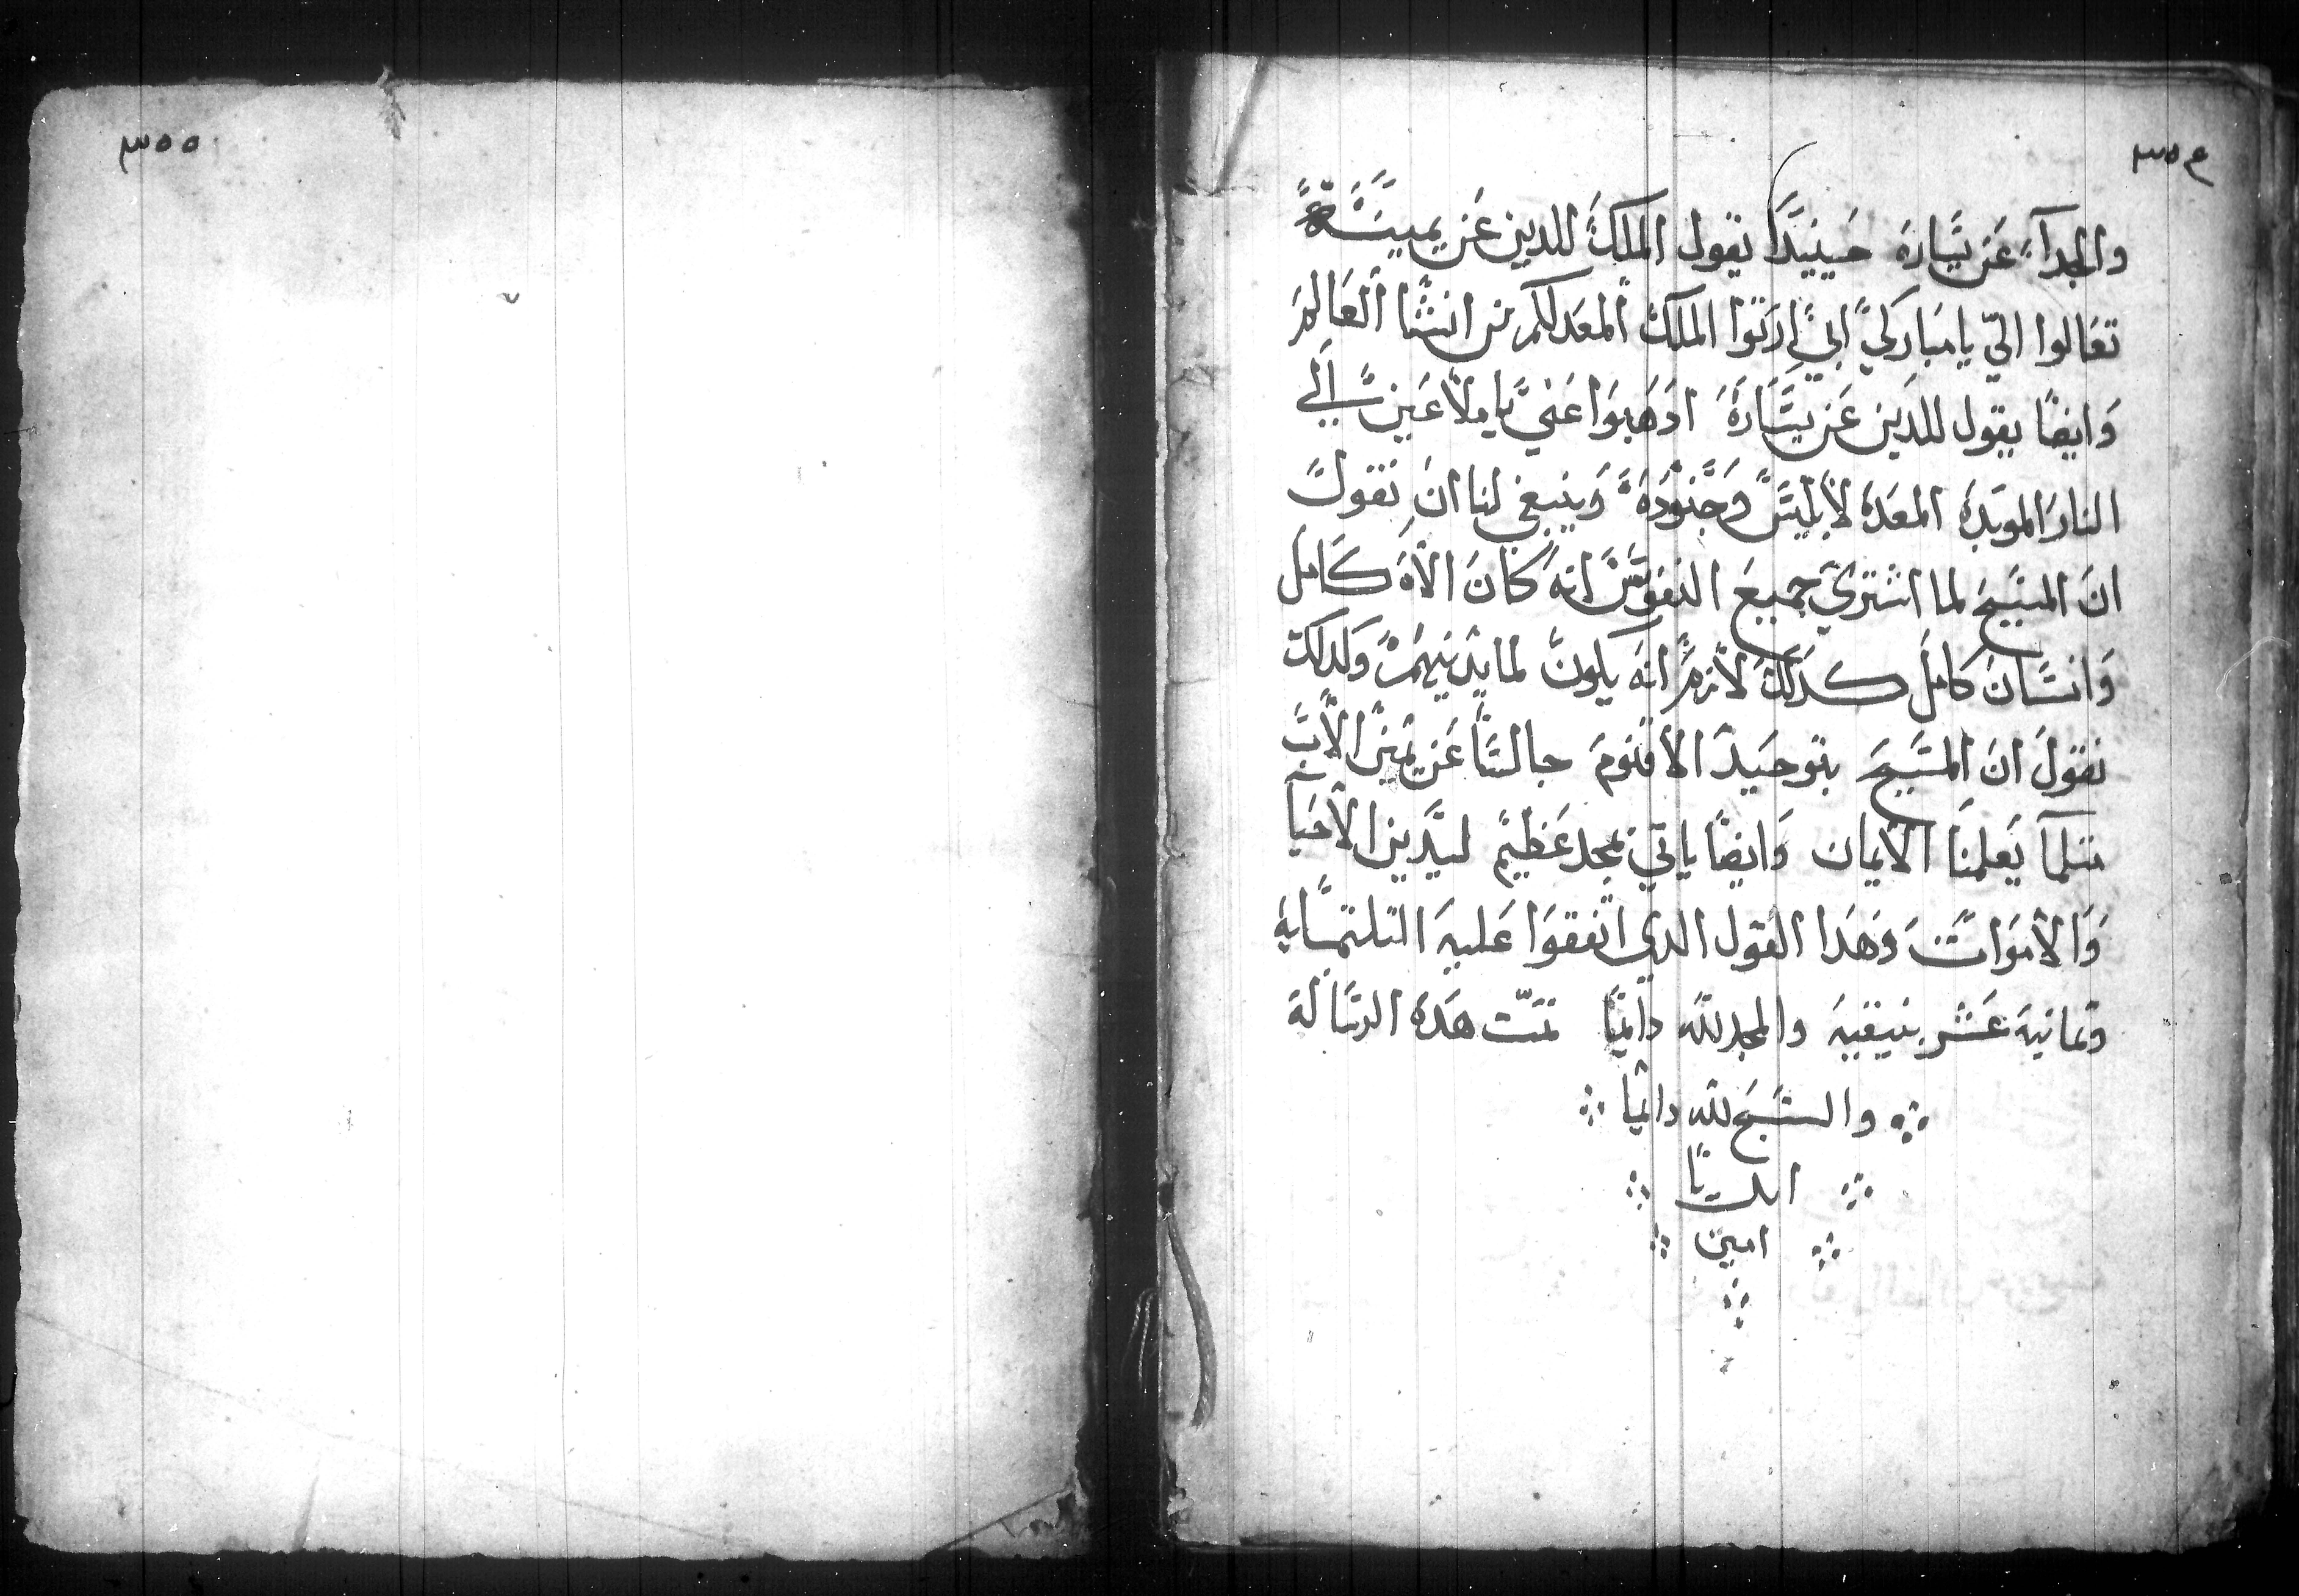 ٣٥٤
والجدآء عَن يَسَارهَ حَينيَدًا يقول الملكَ للدين عَن يمينَهً
تعَالوا اليّ يا مبَاركيً ابيً ارتوا الملكَ المعَد لكم من انشًا العَالمَ
وَايضًا يقول للدَين عَن يسَارهَ ادَهَبَوا عَنيً يا ملاعَين الَي
النارَ الموَبدَه المعَدهَ لابليسَ وَجَنوَدَهَ وَينبغي لنا انَ نَقولَ
انَ المسَيحَ لما اشتَريَ جميعَ النفوَسَ انهَ كانَ الاهَ كَامل
وَانسَانَ كاملَ كدَلكَ لازمَ انهَ يكونَ لما يدَينهمَ وَكدلك
نقولَ انَ المسَيحَ بتوحَيدَ الاقنومَ جالسًا عَن يَمينَ الابَ
متلمآ يَعلمنَا الايمان وَايضًا ياتيَ بمجد عَظيمَ ليَدَين الاحَيآ
وَالامَوَاتَ وَهَدَا القول الدي اتفقوَا عَليهَ التلتمَايه
وتمانيهَ عَشر بنيقيهَ والمجد للهَ دَايمًا تمَت هَدهَ الرسَالهَ
والسَبحَ للهَ دَايمًا
ابديًا
امين
٣٥٥